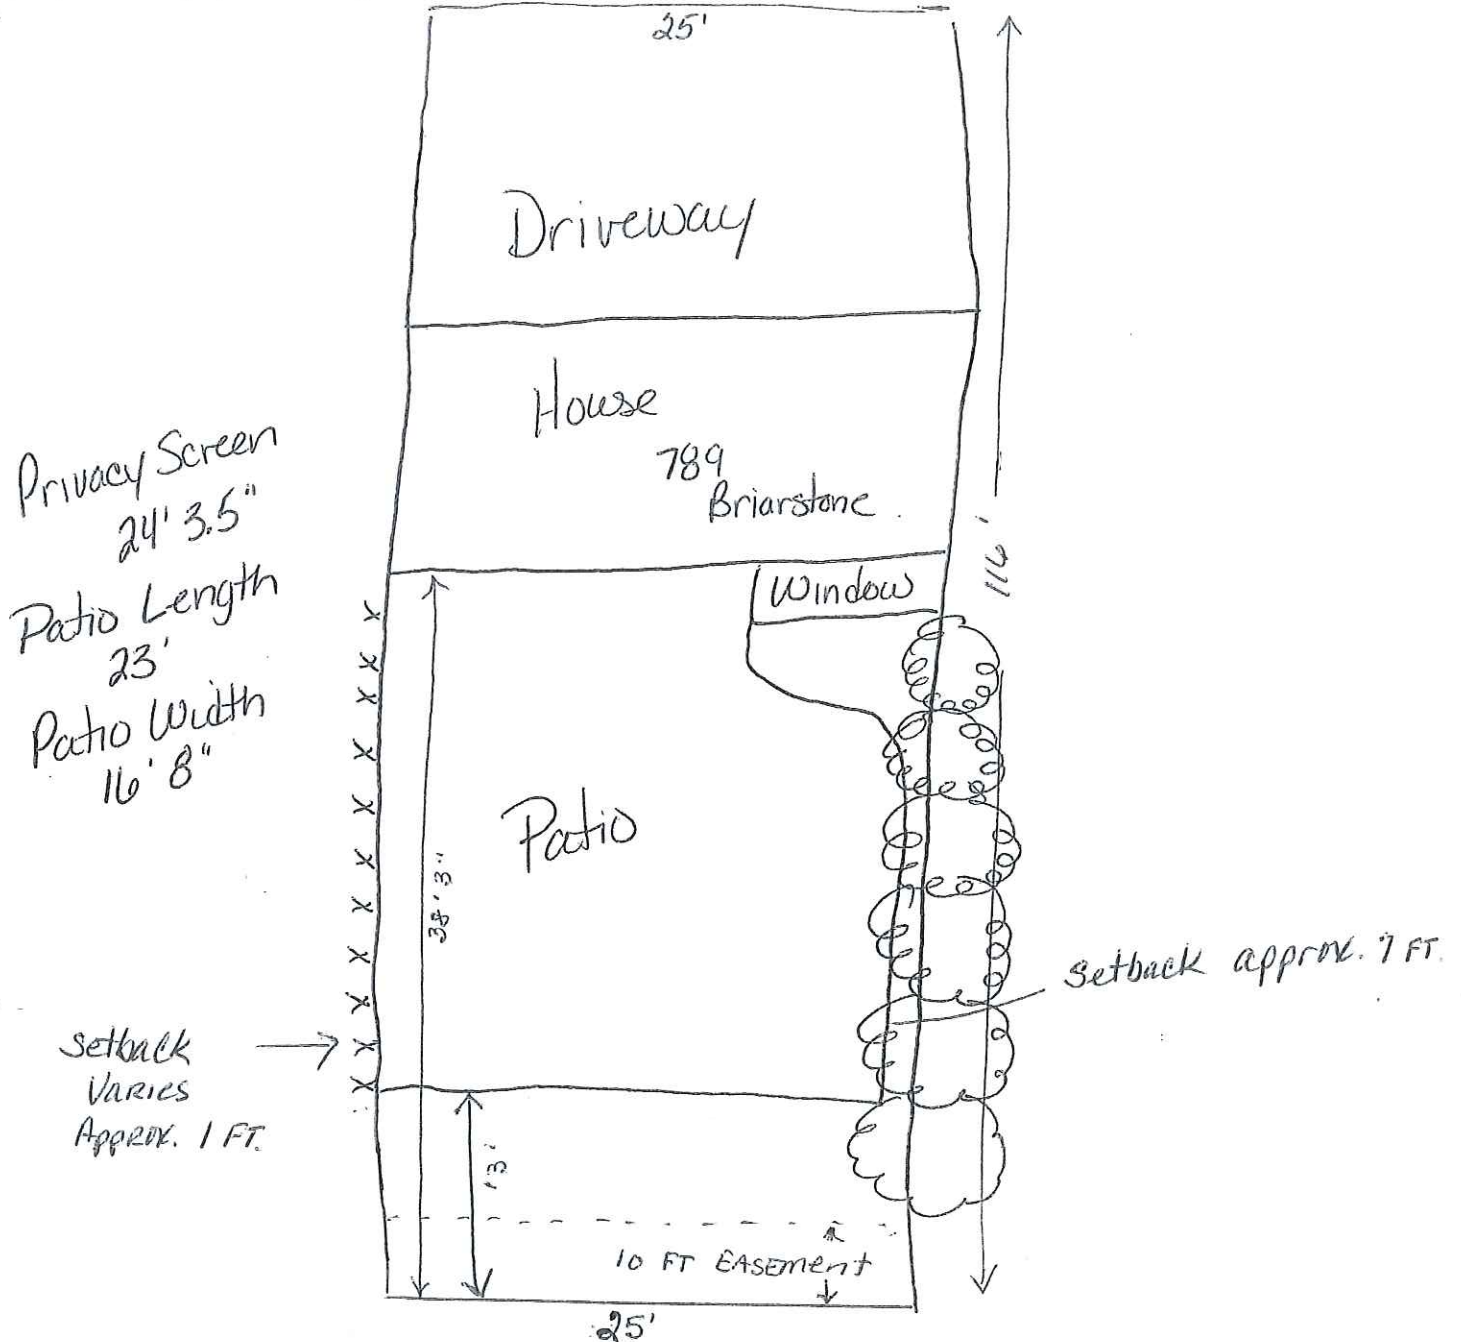 25'
Driveway
House
789
Briarstone
Privacy Screen
24' 3.5"
Patio Length
23'
Patio Width
16' 8"
116'
Window
Patio
38' 3"
Setback approx. 7 FT.
Setback
VARIES
APPROX. 1 FT.
13'
10 FT EASEMENT
25'